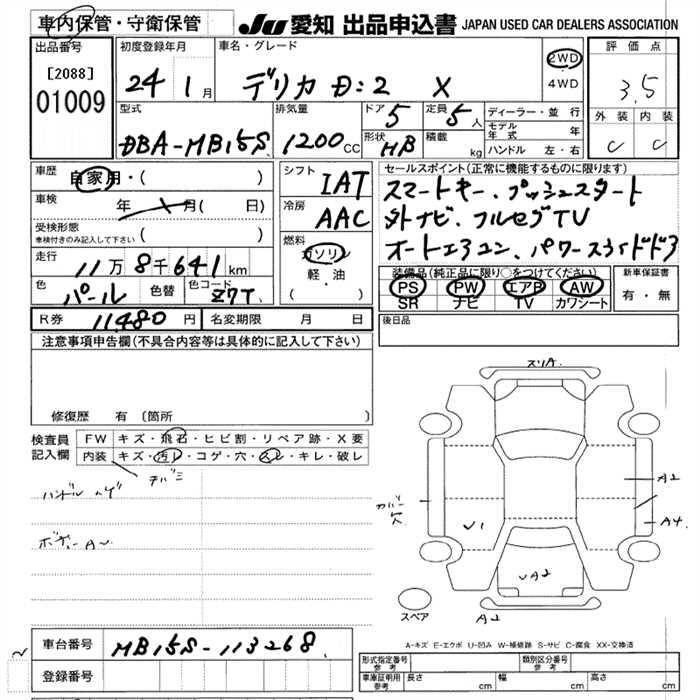 車内保管・守衛保管
JU 愛知 出品申込書 JAPAN USED CAR DEALERS ASSOCIATION
出品番号
[2088]
01009
初度登録年月
24 1月
車名・グレード
デリカ D:2 X
2WD
・
4WD
評価点
3.5
外装 内装
C C
型式
DBA-MB15S
排気量
1200cc
ドア 5
形状 HB
定員 5人
積載 kg
ディーラー・並行
モデル年式 年
ハンドル 左・右
車歴
自家用・( )
車検
年 月( 日)
受検形態
車検付きのみ記入して下さい ( )
走行
11万8千641km
色
パール
色替
色コード
Z7T
シフト
IAT
冷房
AAC
燃料
ガソリン
軽・油
( )
セールスポイント(正常に機能するものに限ります)
スマートキー、プッシュスタート
外ナビ、フルセグTV
オートエアコン、パワースライドドア
装備品(純正品に限り○をつけてください)
PS PW エアB AW
SR ナビ TV カワシート
新車保証書
有・無
R券 11,480円
名変期限 月 日
後日品
注意事項申告欄(不具合内容等は具体的に記入して下さい)
修復歴 有〔箇所 〕
検査員
記入欄
FW キズ・飛石・ヒビ割・リペア跡・X要
内装 キズ・汚レ・コゲ・穴・スレ・キレ・破レ
ハンドル ハゲ
スリA
A2
A4
カバー欠
U1
UA2
A2
スペア
A-キズ E-エクボ U-凹み W-補修跡 S-サビ C-腐食 XX-交換済
車台番号
MB15S-113268
登録番号
形式指定番号
参考
類別区分番号
参考
車庫証明用
参考
長さ cm
幅 cm
高さ cm